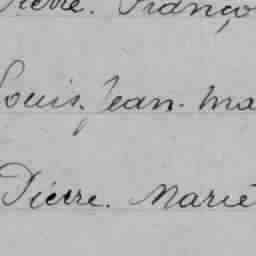 Pierre. Franço
Louis. Jean. Ma
Pierre. Marie